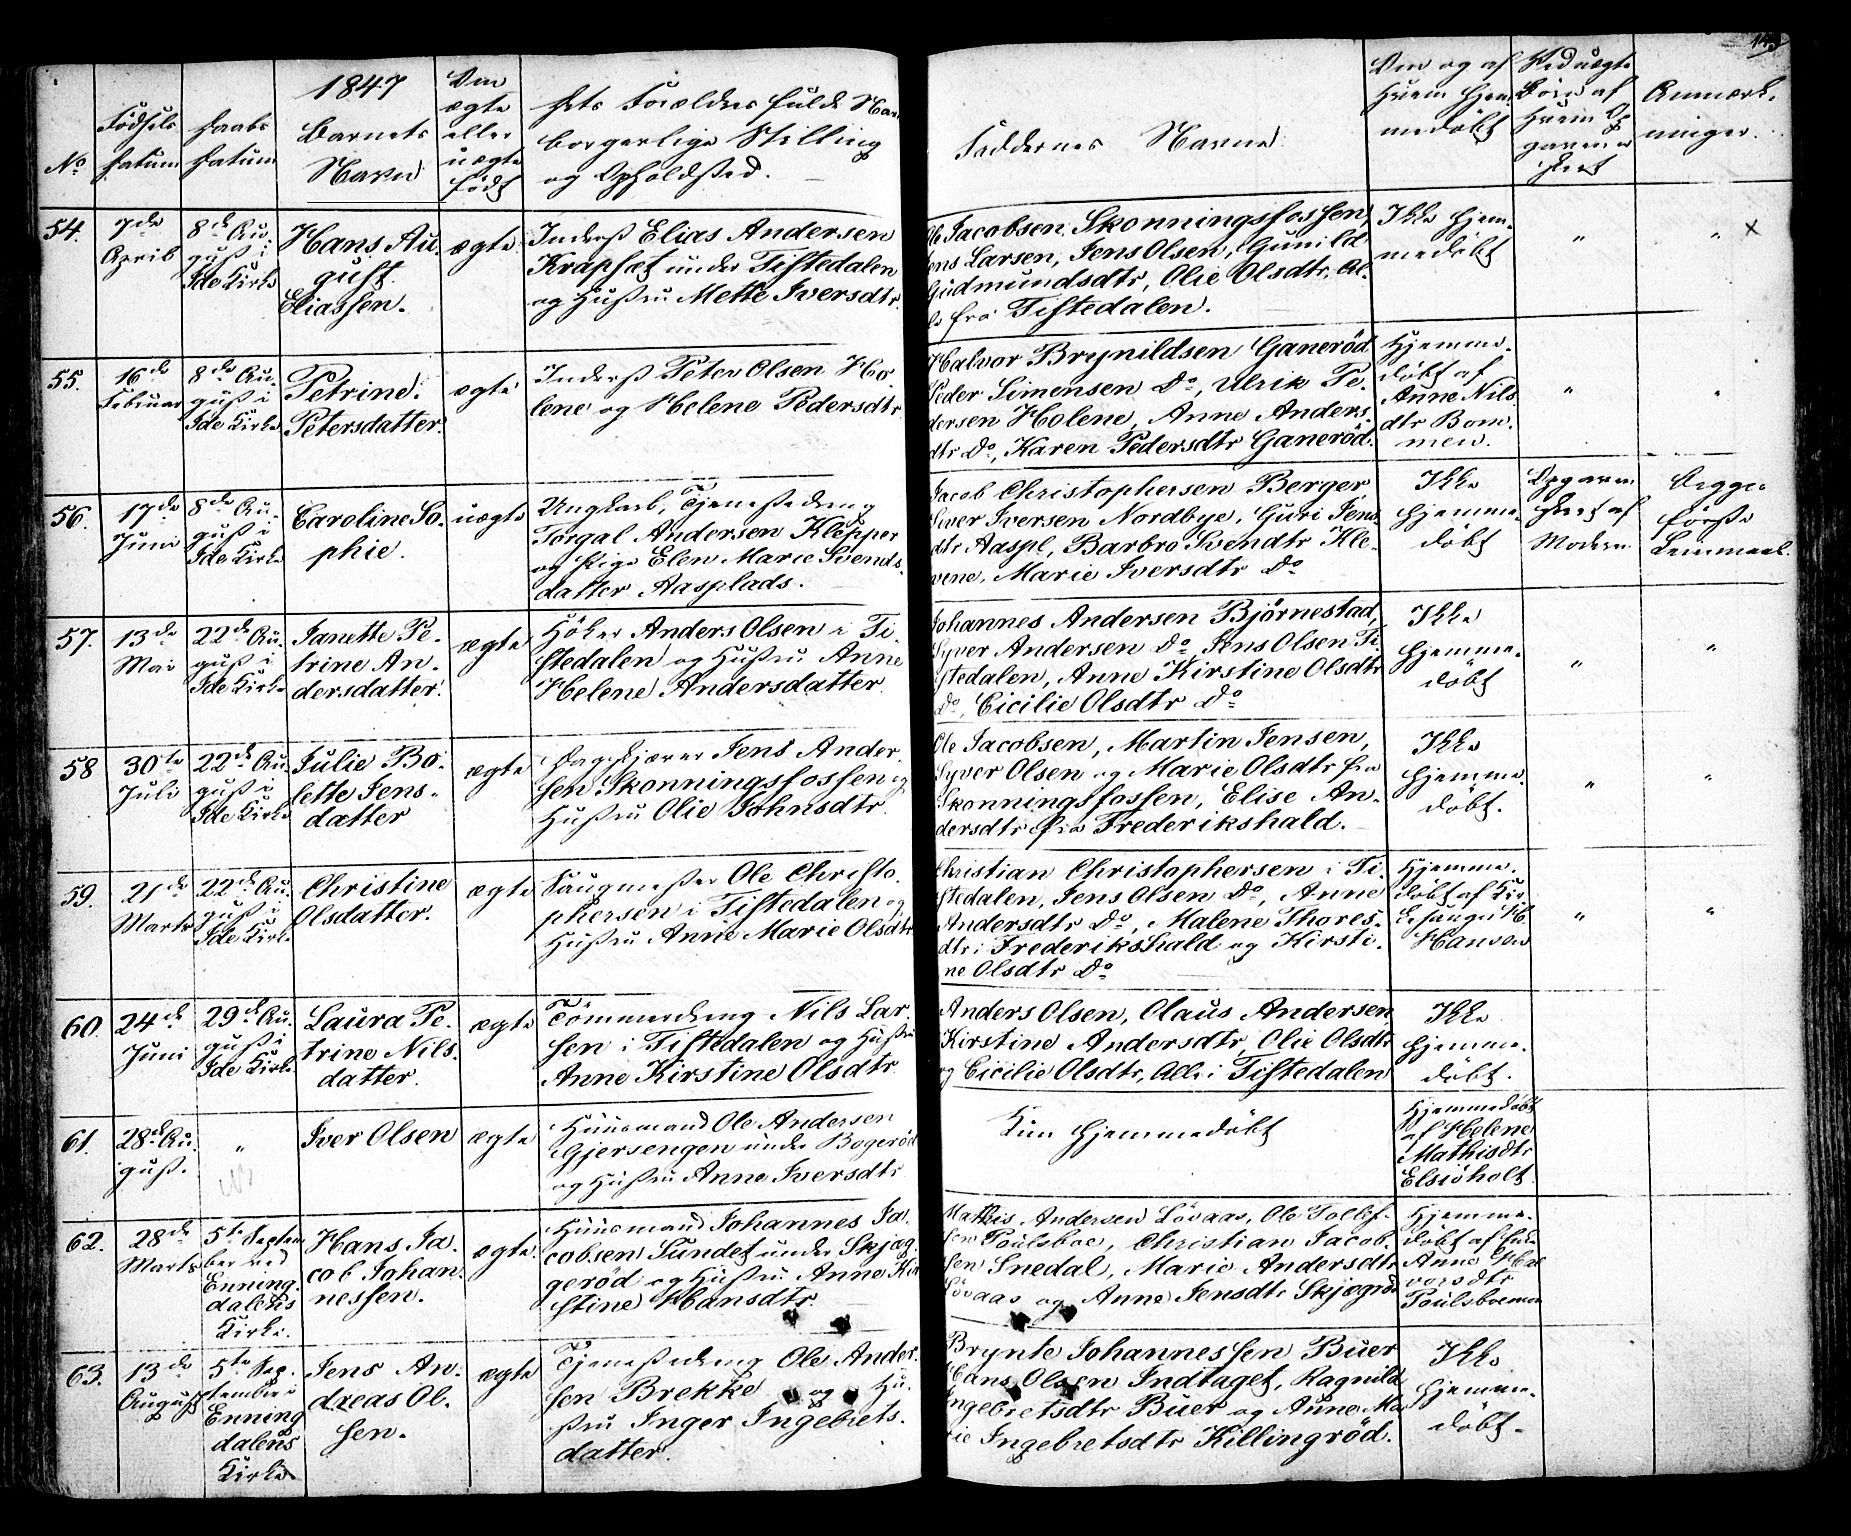 1847
No
Födsels Datum
Daabs Datum
Barnets Navn
Om ægte eller uægte født
Dets Forældres fulde Navn
borgerlige Stilling
og Opholdsted.
Faddernes Navne
Om og af Hvem Hjemmedøbt
Ved uægte Børn af Hvem Opgaven er skeet
Anmærkninger.
54.
7de April
8de August i Ide Kirke
Hans August. Eliassen.
ægte
Inderst Elias Andersen
Krapsæt under Tistedalen
og Hustru Mette Iversdtr.
Ole Jacobsen, Skonningsfossen,
Jens Larsen, Jens Olsen, Gunild
Gudmundsdtr, Olie Olsdtr, Al-
le fra Tistedalen.
Ikke Hjemmedøbt
"
" x
55.
16de Februar
8de August i Ide Kirke
Petrine Petersdatter.
ægte
Inderst Peter Olsen Ho-
lene og Helene Pedersdtr
Halvor Brynildsen Ganeröd
Peder Simensen Do, Ulrik Pe-
dersen Holene, Anne Anders-
dtr Do, Karen Pedersdtr Ganeröd.
Hjemmedøbt af Anne Nilsdtr Bommen.
"
"
56.
17de Juni
8de August i Ide Kirke
Caroline Sophie.
uægte
Ungkarl, Tjenestedreng
Torgal Andersen Klepper
og Pige Elen Marie Svends-
datter Aasplads.
Jacob Christophersen Berger
Iver Iversen Nordbye, Guri Jens-
dtr Aaspl, Barbro Svendtr Kle-
vene, Marie Iversdtr Do
Ikke Hjemmedøbt
Opgaven skeet af Moderen
Begges første Leiermaal.
57.
13de Mai
22de August i Ide Kirke
Janette Petrine Andersdatter.
ægte
Höker Anders Olsen i Ti-
stedalen og Hustru Anne
Helene Andersdatter
Johannes Andersen Björnestad,
Syver Andersen Do, Jens Olsen Ti-
stedalen, Anne Kirstine Olsdtr
Do, Cicilie Olsdtr Do
Ikke Hjemmedøbt
"
"
58
30te Juli
22de August i Ide Kirke
Julie Bolette Jensdatter
ægte
Dagskjærer Jens Ander-
sen Skonningsfossen og
Hustru Olie Johnsdtr.
Ole Jacobsen, Martin Jensen,
Syver Olsen og Marie Olsdtr fra
Skonningsfossen, Elise An-
dersdtr fra Frederikshald.
Ikke Hjemmedøbt.
"
"
59.
21de Marts
22de August i Ide Kirke
Christine Olsdatter.
ægte
Saugmester Ole Christo-
phersen i Tistedalen og
Hustru Anne Marie Olsdtr
Christian Christophersen i Ti-
stedalen, Jens Olsen Do, Anne
Andersdtr Do, Malene Thores-
dtr i Frederikshald og Kirsti-
ne Olsdtr Do
Hjemmedøbt af Kirkesanger Hansen
"
"
60.
24de Juni
29de August i Ide Kirke
Laura Petrine Nilsdatter.
ægte
Tömmerdreng Nils Lar-
sen i Tistedalen og Hustru
Anne Kirstine Olsdtr
Anders Olsen, Olaus Andersen
Kirstine Andersdtr, Olie Olsdtr
og Cicilie Olsdtr, Alle i Tistedalen
Ikke Hjemmedøbt.
61.
28de August.
"
Iver Olsen
ægte
Huusmand Ole Andersen
Gjersengen under Bogeröd
og Hustru Anne Iversdtr
Kun Hjemmedøbt
Hjemmedøbt af Helene Mathisdtr Elsiöholt
62.
28de Marts
5te September ved Enningdalens Kirke.
Hans Jacob Johannessen.
ægte.
Huusmand Johannes Ja-
cobsen Sundet under Skjæg-
geröd og Hustru Anne Kir-
stine Hansdtr
Mathis Andersen Lövaas, Ole Tollef-
sen Poulsboe, Christian Jacob-
sen Snedal, Marie Andersdtr
Lövaas og Anne Jensdtr Skjægeröd
Hjemmedøbt af Anne Halvorsdtr Poulsboemoen
63.
13de August
5te September i Enningdalens Kirke
Jens Andreas Olsen.
ægte
Tjenestedreng Ole Ander-
sen Brekke og Hu-
stru Inger Ingebrets-
datter.
Brynte Johannessen Buer
Hans Olsen Indtaget, Ragnild
Ingebretsdtr Buer og Anne Ma-
rie Ingebretsdtr Killingröd.
Ikke Hjemmedøbt.